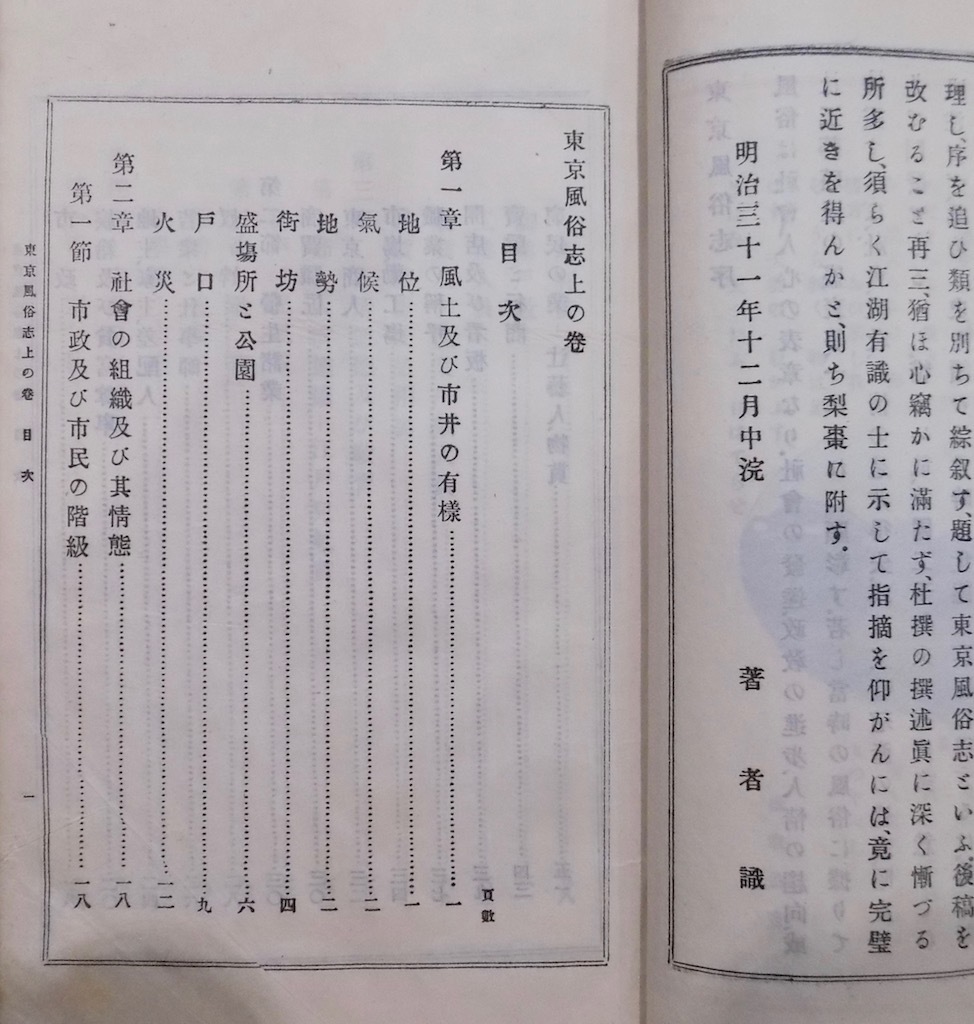 理し、序を追ひ類を別ちて綜叙す、題して東京風俗志といふ後稿を
改むること再三、猶ほ心竊かに滿たず、杜撰の撰述眞に深く慚づる
所多し、須らく江湖有識の士に示して指摘を仰がんには、竟に完璧
に近きを得んかと、則ち梨棗に附す。
明治三十一年十二月中浣
著者識
東京風俗志上の卷
目次
頁數
第一章 風土及び市井の有樣……一
地位……一
氣候……二
地勢……二
街坊……四
盛塲所と公園……六
戸口……九
火災……一二
第二章 社會の組織及び其情態……一八
第一節 市政及び市民の階級……一八
東京風俗志上の卷 目次 一